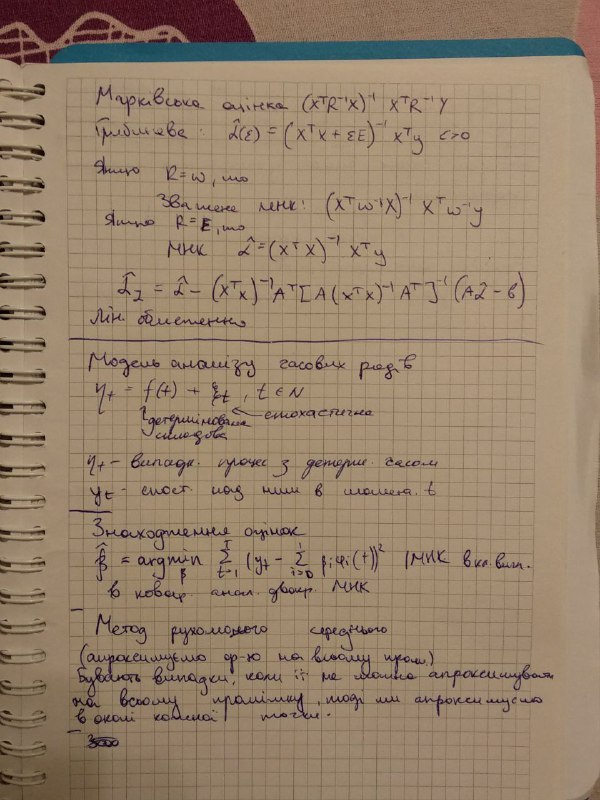 Марківська оцінка (XᵀR⁻¹X)⁻¹ XᵀR⁻¹Y
Гребнева: α̂(ε) = (XᵀX + εE)⁻¹ Xᵀy ε>0
Якщо R=w, то
Зважене МНК: (Xᵀw⁻¹X)⁻¹ Xᵀw⁻¹y
Якщо R=E, то
МНК α̂ = (XᵀX)⁻¹ Xᵀy
= α̂ - (XᵀX)⁻¹Aᵀ[A(XᵀX)⁻¹Aᵀ]⁻¹(Aα̂ - b)
Лін. обмеження
Модель аналізу часових рядів
ηt = f(t) + ξt, t ∈ N
детермінована ← стохастична
складова
ηt - випадк. процес з детерм. часом
yt - спост. над ним в момент. t
Знаходження оцінок
β̂ = argmin β Σ t=1 T (yt - Σ i=0 βiφi(t))² МНК
в ковар. анал. двокр. МНК
Метод рухомого середнього
(апроксимуємо ф-ю на всьому пром.)
Бувають випадки, коли її не можна апроксимувати
на всьому проміжку, тоді ми апроксимуємо
в околі кожної точки.